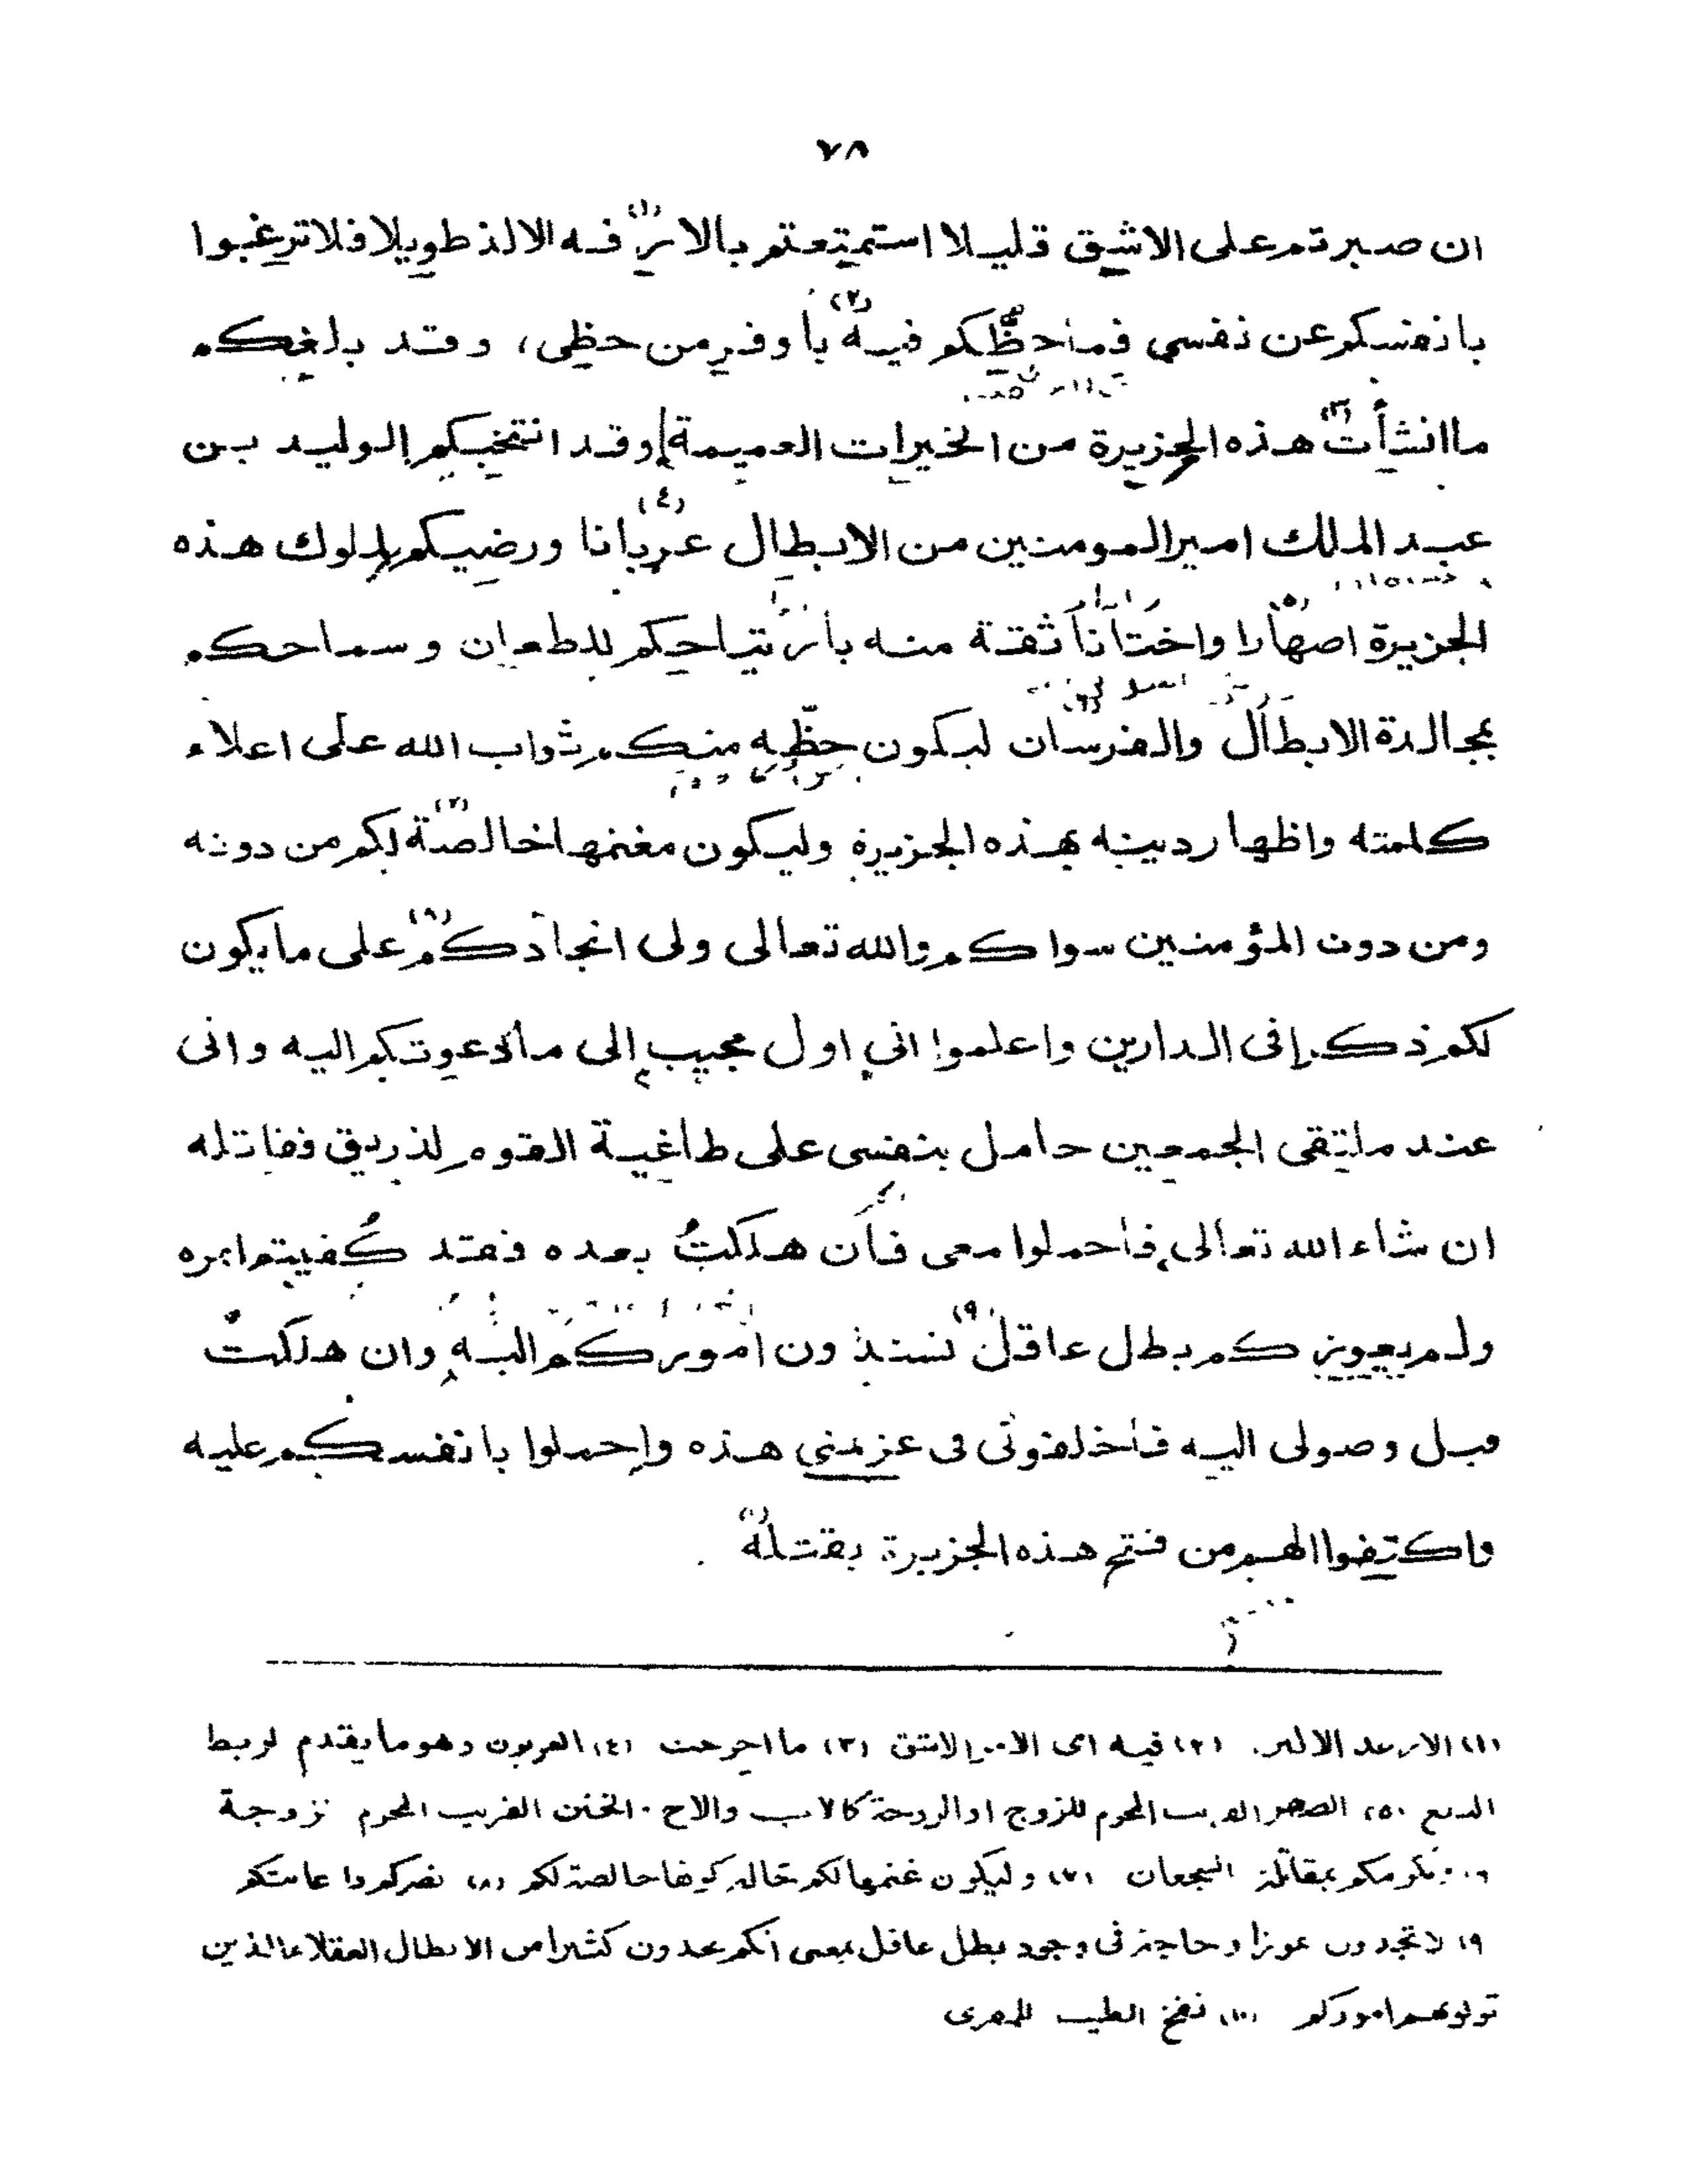 ٧٨
ان صبرتم على الاشق قليلا استمتعتم بالار(١)فه الالذ طويلا فلا ترغبوا
بانفسكم عن نفسي فما حظّكم فيه(٢) باوفر من حظى، وقد بلغكم
ما انشأت(٣) هذه الجزيرة من الخيرات العميمة وقد انتخبكم الوليد بن
عبد الملك امير المومنين من الابطال عربانا(٤) ورضيكم لملوك هذه
الجزيرة اصهارا(٥) واختانا ثقة منه بارتياحكم للطعان وسماحكم
بمجالدة الابطال والفرسان(٦) ليكون حظّه منكم ثواب الله على اعلاء
كلمته واظهار دينه بهذه الجزيرة وليكون مغنمها خالصة(٧) لكم من دونه
ومن دون المؤمنين سواكم والله تعالى ولى انجادكم(٨) على ما يكون
لكم ذكرا فى الدارين واعلموا انى اول مجيب إلى ما دعوتكم اليه وانى
عند ملتقى الجمعين حامل بنفسى على طاغية القوم لذريق فقاتله
ان شاء الله تعالى فاحملوا معى فان هلكتُ بعده فقد كُفيتم امره
ولم يعوزكم بطل عاقل(٩) تسندون اموركم اليه وان هلكتُ
قبل وصولى اليه فاخلفونى فى عزيمتى هذه واحملوا بانفسكم عليه
واكتفوا الهم من فتح هذه الجزيرة بقتله(١٠)
(١) الارغد الالين. (٢) فيه اى الامر الاشق (٣) ما اخرجت (٤) العربون وهو ما يقدم لربط
البيع (٥) الصهر القريب المحرم للزوج او الزوجة كالاب والاخ. الختن القريب المحرم لزوجة
(٦) وكرمكم بمقاتلة الشجعان (٧) وليكون غنمها لكم حالة كونها خالصة لكم (٨) نصركم واعانتكم
(٩) لا تجدون عوزا وحاجة فى وجود بطل عاقل بمعنى انكم تجدون كثيرا من الابطال العقلاء الذين
تولونهم اموركم (١٠) نفح الطيب للمقرى